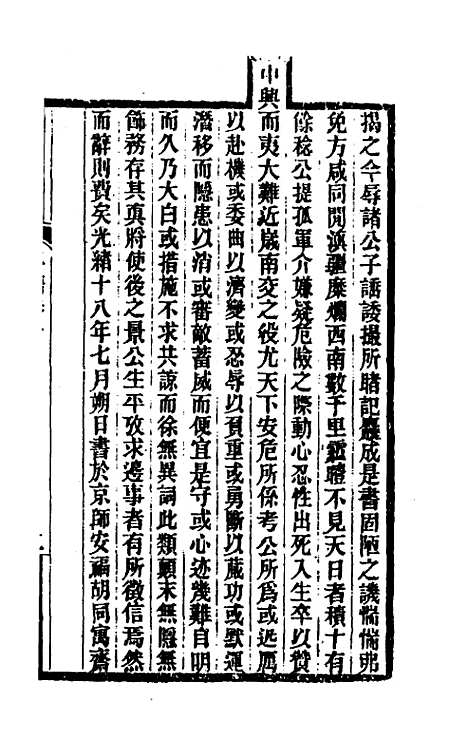 揭之今辱諸公子諈諉撮所睹記叢成是書固陋之譏惴惴弗
免方咸同閒滇疆糜爛西南數千里霾曀不見天日者積十有
餘稔公提孤軍介嫌疑危險之際動心忍性出死入生卒以贊
中興而夷大難近嵗南交之役尤天下安危所係考公所爲或迅厲
以赴機或委曲以濟變或忍辱以負重或勇斷以蕆功或默運
潛移而隱患以消或審敵蓄威而便宜是守或心迹幾難自明
而久乃大白或措施不求共諒而徐無異詞此類顚末無隱無
飾務存其眞將使後之景公生平攷求邊事者有所徵信焉然
而辭則費矣光緒十八年七月朔日書於京師安福胡同寓齋